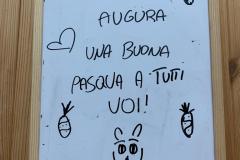 AUGURA
UNA BUONA
PASQUA A TUTTI
VOI!